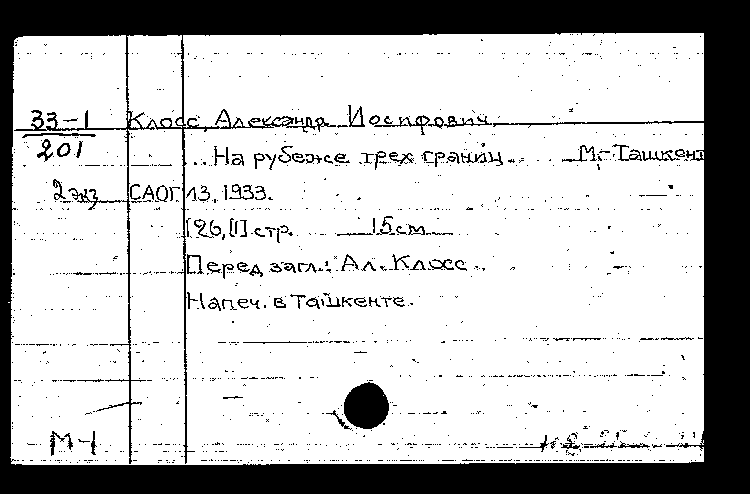 33-1 Клосс, Александр Иосифович.
201 ... На рубеже трех границ. М.-Ташкент
2 экз САОГИЗ, 1933.
126, [1] стр. 15 см
Перед загл.: Ал. Клосс.
Напеч. в Ташкенте.
М-1